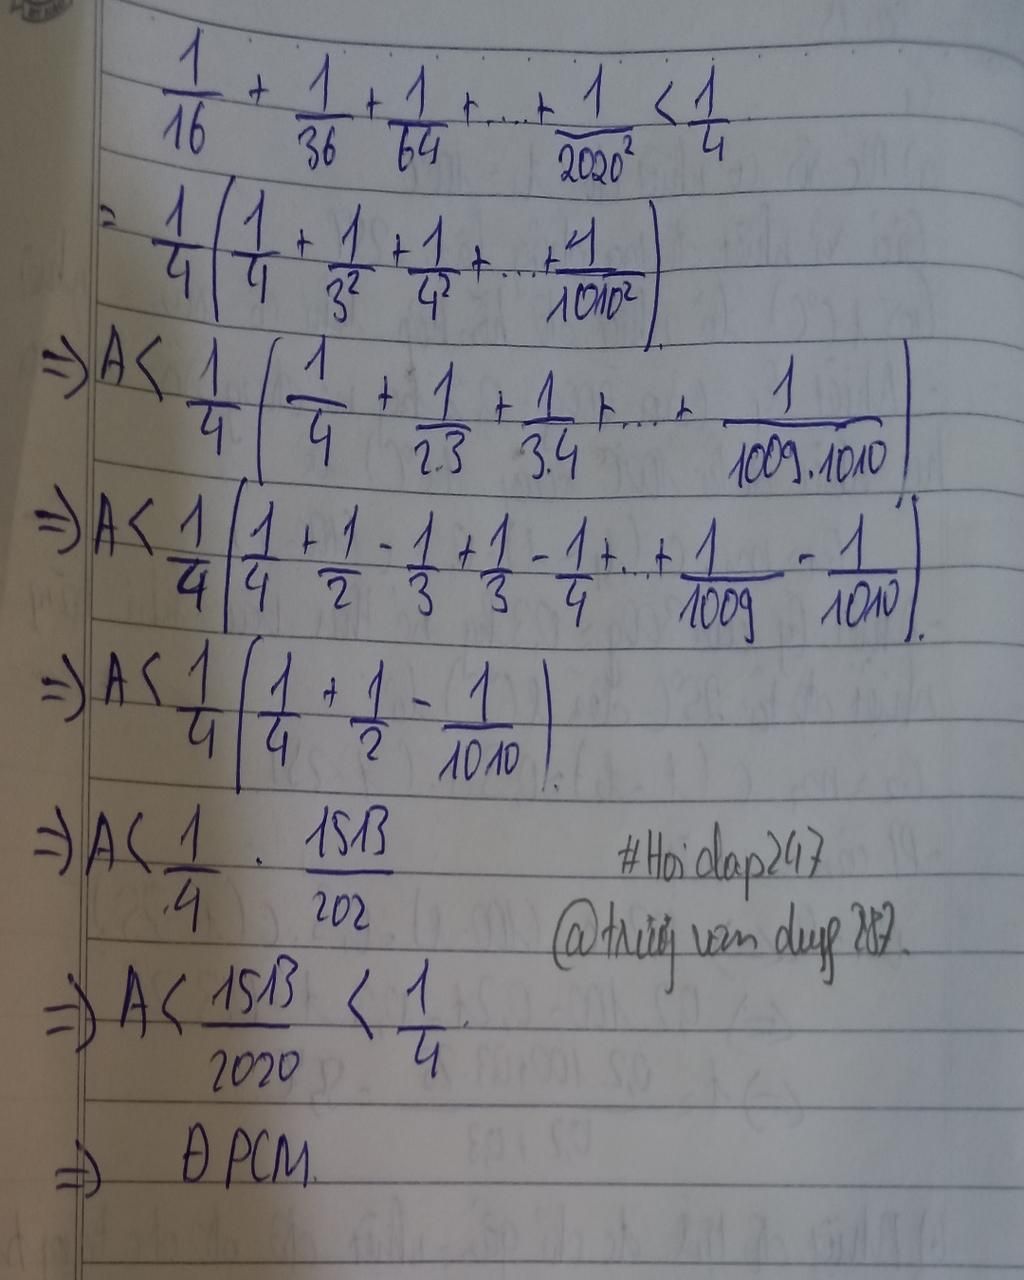 1/16 + 1/36 + 1/64 + .... + 1/2020² < 1/4
= 1/4 (1/4 + 1/3² + 1/4² + ... + 1/1010²).
=> A < 1/4 (1/4 + 1/2.3 + 1/3.4 + ... + 1/1009.1010)
=> A < 1/4 (1/4 + 1/2 - 1/3 + 1/3 - 1/4 + ... + 1/1009 - 1/1010).
=> A < 1/4 (1/4 + 1/2 - 1/1010).
=> A < 1/4 . 1513/202
#Hoidap247
=> A < 1513/2020 < 1/4.
=> ĐPCM.